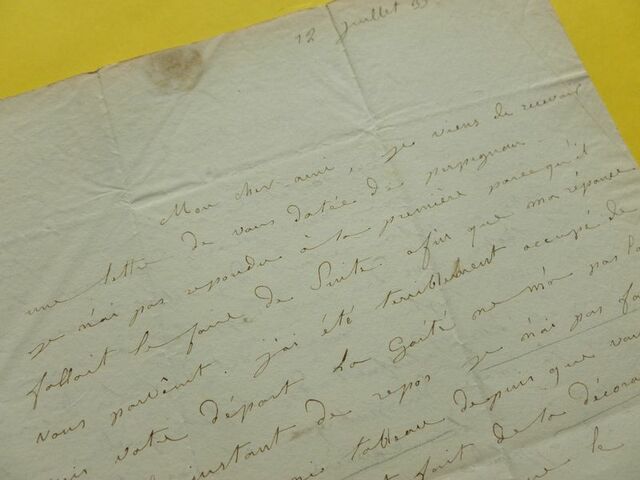 12 juillet 33
Mon cher ami, je viens de recevoir
une lettre de vous datée de perpignan.
je n'ai pas repondu à la première parcequ'il
fallait le faire de Suite. afin que ma réponse
vous parvênt. j'ai été terriblement occupé de
puis votre départ La Gaîté ne m'a pas la
instant de repos je n'ai pas fa
tableau depuis que vou
fait de la décora
que le